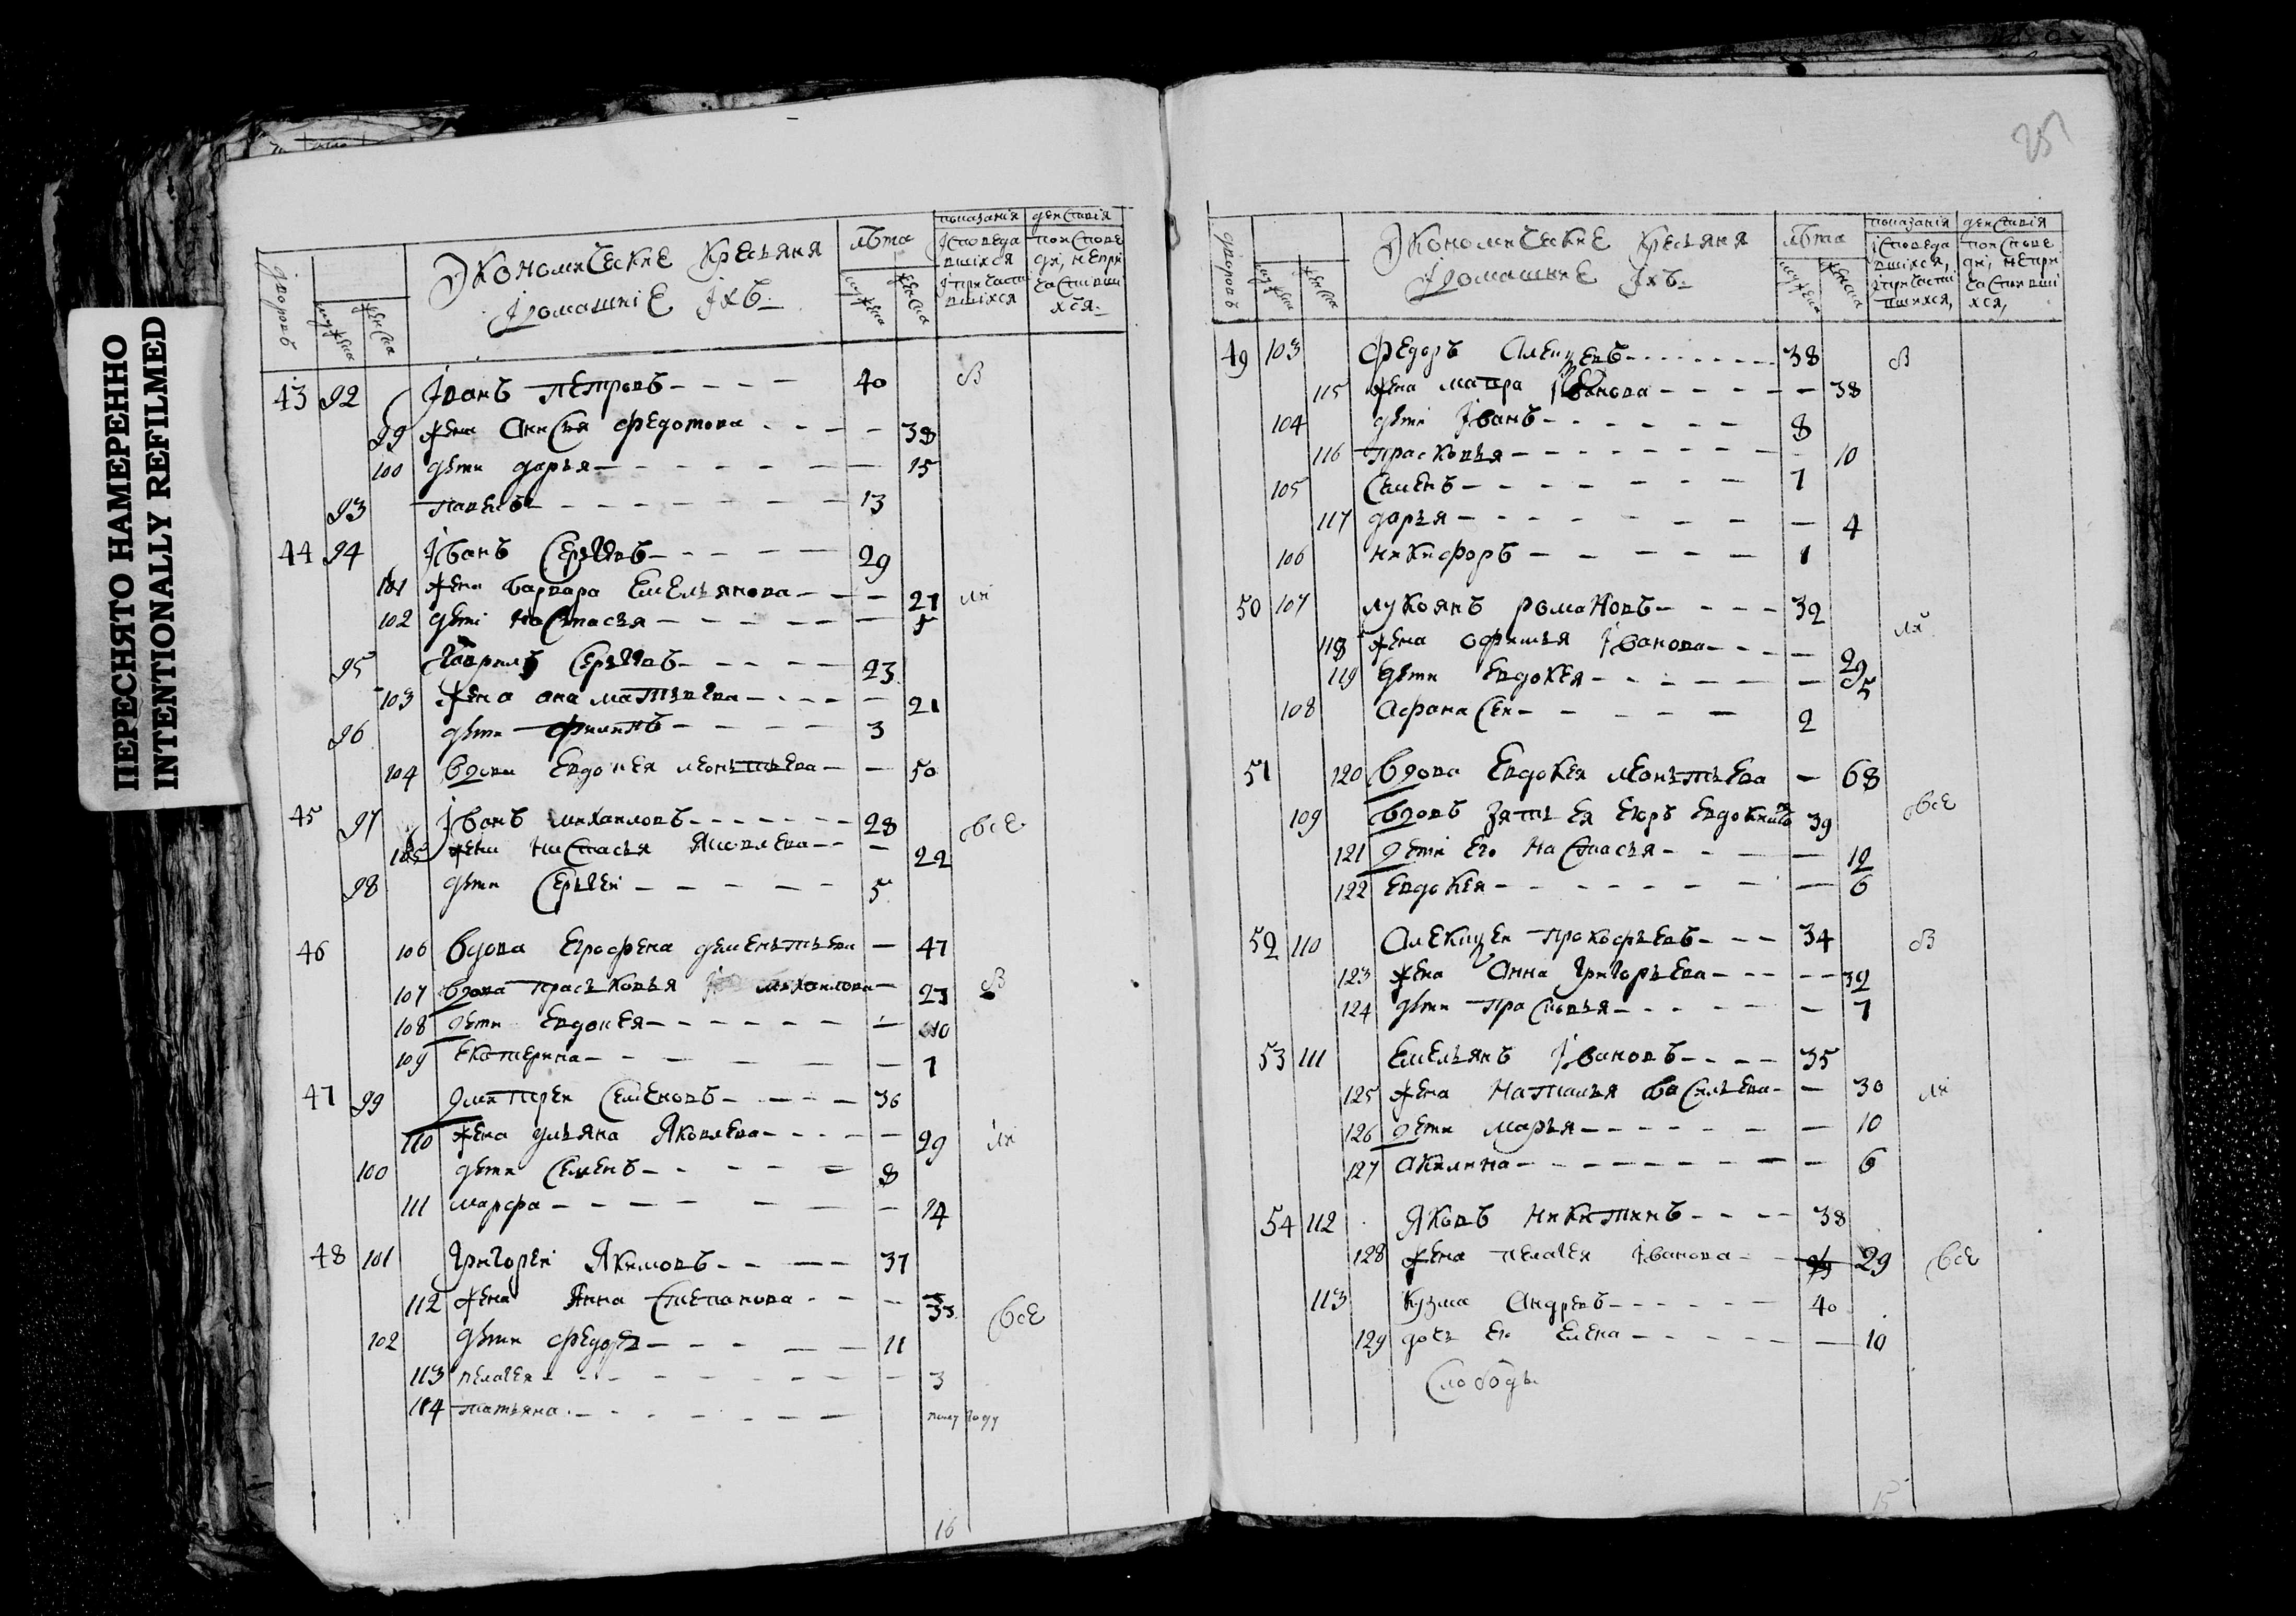 ПЕРЕСНЯТО НАМЕРЕННО
INTENTIONALLY REFILMED
показанія действія
дворовъ мужеска женска Экономические Крестьяня лѣта
ісповеда по исповеди, непри
і домашніе іхъ мужеска женска
вшіхся і причасти вшіхся частивши хся
43 92 іванъ петровъ 40 в
99 жена анисия федотова 38
100 дѣти дарья 15
93 павелъ 13
44 94 іванъ Сергѣевъ 29
101 жена варвара Емельянова 27 ли
102 дѣти настасья 5
95 гаврилъ Сергѣевъ 23
103 жена ана матвѣева 21
96 дѣти филипъ 3
104 вдова Евдокея леонтьева 50
45 97 іванъ михаиловъ 28 все
105 жена настасья Яковлева 22
98 дѣти Сергѣеи 5
46 106 вдова Егрофена дементьева 47
107 вдова праськовья михаилова 23 в
108 дети Евдокея 10
109 Екатерина 7
47 99 дмитреи Семеновъ 36
110 жена ульяна Яковлева 29 ли
100 дѣти Семенъ 8
111 марфа 14
48 101 Григореи Якимовъ 37
112 жена Анна Степанова 33 все
102 дѣти федоръ 11
113 пелагея 3
114 татьяна полугоду
16
251
показанія действія
дворовъ мужеска женска Экономические Крестьяня лѣта
ісповеда по исповеди, непри
і домашние іхъ мужеска женска
вшіхся, і причасти вшихся, частивши хся,
49 103 федоръ Алексѣевъ 38 в
115 жена мавра іванова 38
104 дѣти іванъ 8
116 прасковья 10
105 Семенъ 7
117 дарья 4
106 никифоръ 1
50 107 лукоянъ романовъ 32
118 жена офимья іванова 29 ли
119 дѣти Евдокея 5
108 афанасеи 2
51 120 вдова Евдокея леонтьева 68
109 вдовъ зять Ея Егоръ Евдокимовъ 39 все
121 дети Его настасья 12
122 Евдокея 6
52 110 Алекцеи прокофьевъ 34 в
123 жена Анна григорьева 32
124 дѣти прасковья 7
53 111 Емельянъ івановъ 35
125 жена наталья васильева 30 ли
126 дети марья 10
127 акилина 6
54 112 Яковъ никитинъ 38
128 жена пелагея іванова 29 все
113 кузма Андреевъ 40
129 дочь Ево Елена 10
Слободы
15